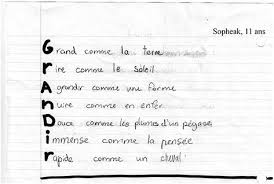 Sopheak, 11 ans
Grand comme la terre
rire comme le soleil
Agrandir comme une forme
nuire comme en enfer
Douce comme les plumes d'un pégase
immense comme la pensée
rapide comme un cheval